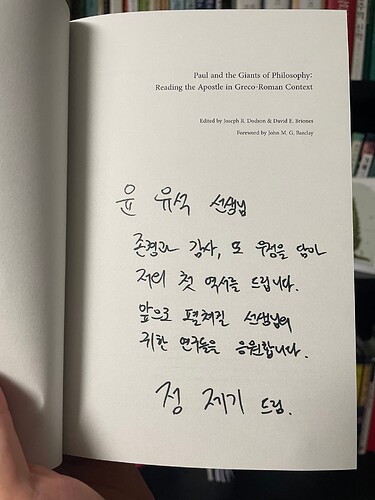 Paul and the Giants of Philosophy:
Reading the Apostle in Greco-Roman Context
Edited by Joseph R. Dodson & David E. Briones
Foreword by John M. G. Barclay
윤 유석 선생님
존경과 감사, 또 우정을 담아
저의 첫 역서를 드립니다.
앞으로 펼쳐질 선생님의
귀한 연구들을 응원합니다.
정 제기 드림.